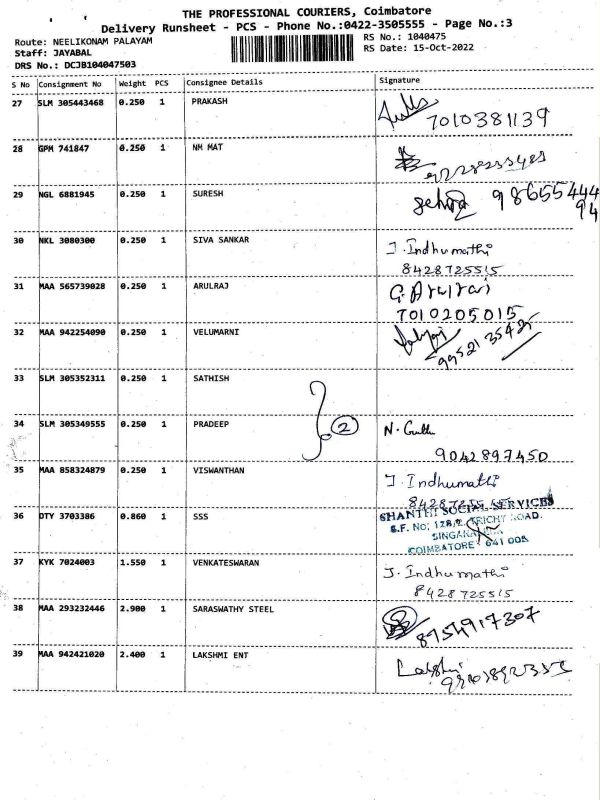 THE PROFESSIONAL COURIERS, Coimbatore
Delivery Runsheet - PCS - Phone No.:0422-3505555 - Page No.:3
Route: NEELIKONAM PALAYAM
RS No.: 1040475
Staff: JAYABAL
RS Date: 15-Oct-2022
DRS No.: DCJB104047503
S No Consignment No Weight PCS Consignee Details Signature
27 SLM 305443468 0.250 1 PRAKASH
7010381139
28 GPM 741847 0.250 1 NM MAT
29 NGL 6881945 0.250 1 SURESH
98655444
94
30 NKL 3080300 0.250 1 SIVA SANKAR J. Indhumathi
8428725515
31 MAA 565739028 0.250 1 ARULRAJ G. Arulraj
7010205015
32 MAA 942254090 0.250 1 VELUMARNI
9952135425
33 SLM 305352311 0.250 1 SATHISH
34 SLM 305349555 0.250 1 PRADEEP 2 N.
9042897450
35 MAA 858324879 0.250 1 VISWANTHAN J. Indhumathi
36 DTY 3703386 0.860 1 SSS SHANTHI SOCIAL SERVICES
S.F. No: TRICHY ROAD.
COIMBATORE - 641 005
37 KYK 7024003 1.550 1 VENKATESWARAN J. Indhumathi
8428725515
38 MAA 293232446 2.900 1 SARASWATHY STEEL
8754917307
39 MAA 942421020 2.400 1 LAKSHMI ENT Lakshmi